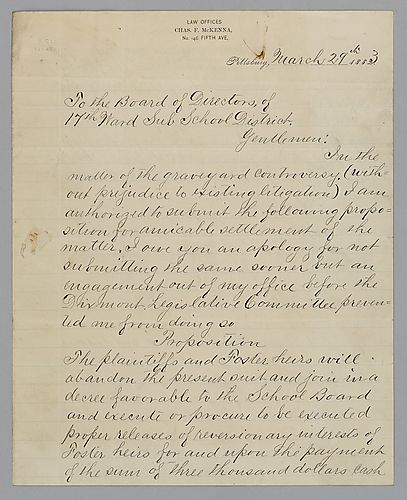 LAW OFFICES
CHAS. F. McKENNA,
No. 146 FIFTH AVE.
Pittsburg, March 29th 1883
To the Board of Directors, of
17th Ward Sub School District.
Gentlemen:
In the
matter of the graveyard controversy, (with-
out prejudice to existing litigation) I am
authorized to submit the following propo-
sition for amicable settlement of the
matter, I owe you an apology for not
submitting the same sooner but an
engagement out of my office before the
Dixmont Legislative Committee preven-
ted me from doing so
Proposition
The plaintiffs and Foster heirs will
abandon the present suit and join in a
decree favorable to the School Board
and execute or procure to be executed
proper releases of reversionary interests of
Foster heirs for and upon the payment
of the sum of three thousand dollars cash